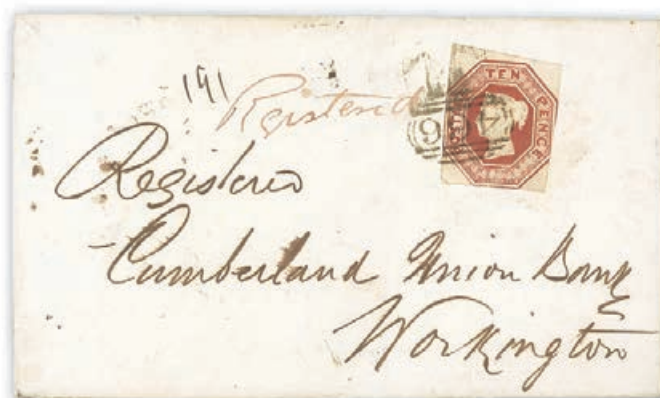 191
Registered
TEN PENCE
Registered
Cumberland Union Bank
Workington